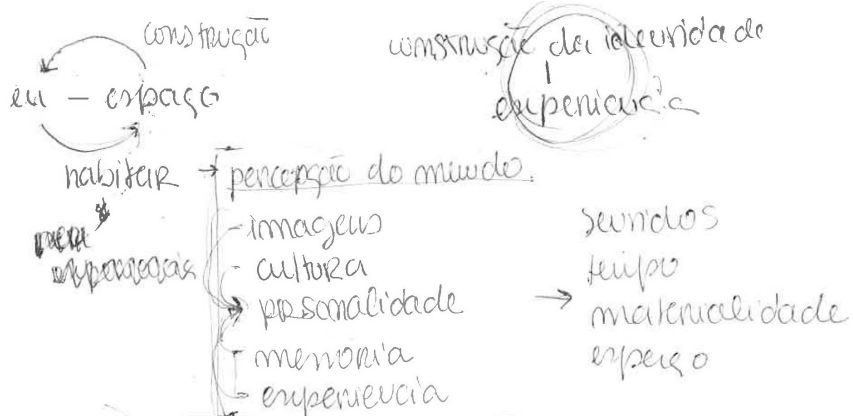 construção
construção da identidade
experiência
eu — espaço
habitar → percepção do mundo.
- imagens
- cultura
- personalidade
- memória
- experiencia
→ sentidos
tempo
materialidade
espaço